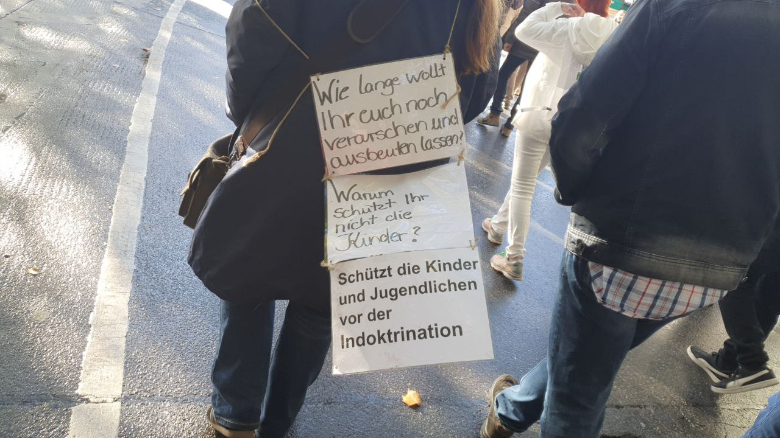 Wie lange wollt
Ihr euch noch
verarschen und
ausbeuten lassen?
Warum
schützt Ihr
nicht die
Kinder?
Schützt die Kinder
und Jugendlichen
vor der
Indoktrination